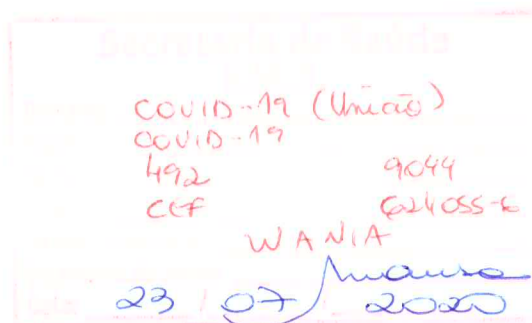 Secretaria de Saúde
COVID-19 (União)
COVID-19
492 9044
CEF 624055-6
WANIA
23 / 07 / 2020